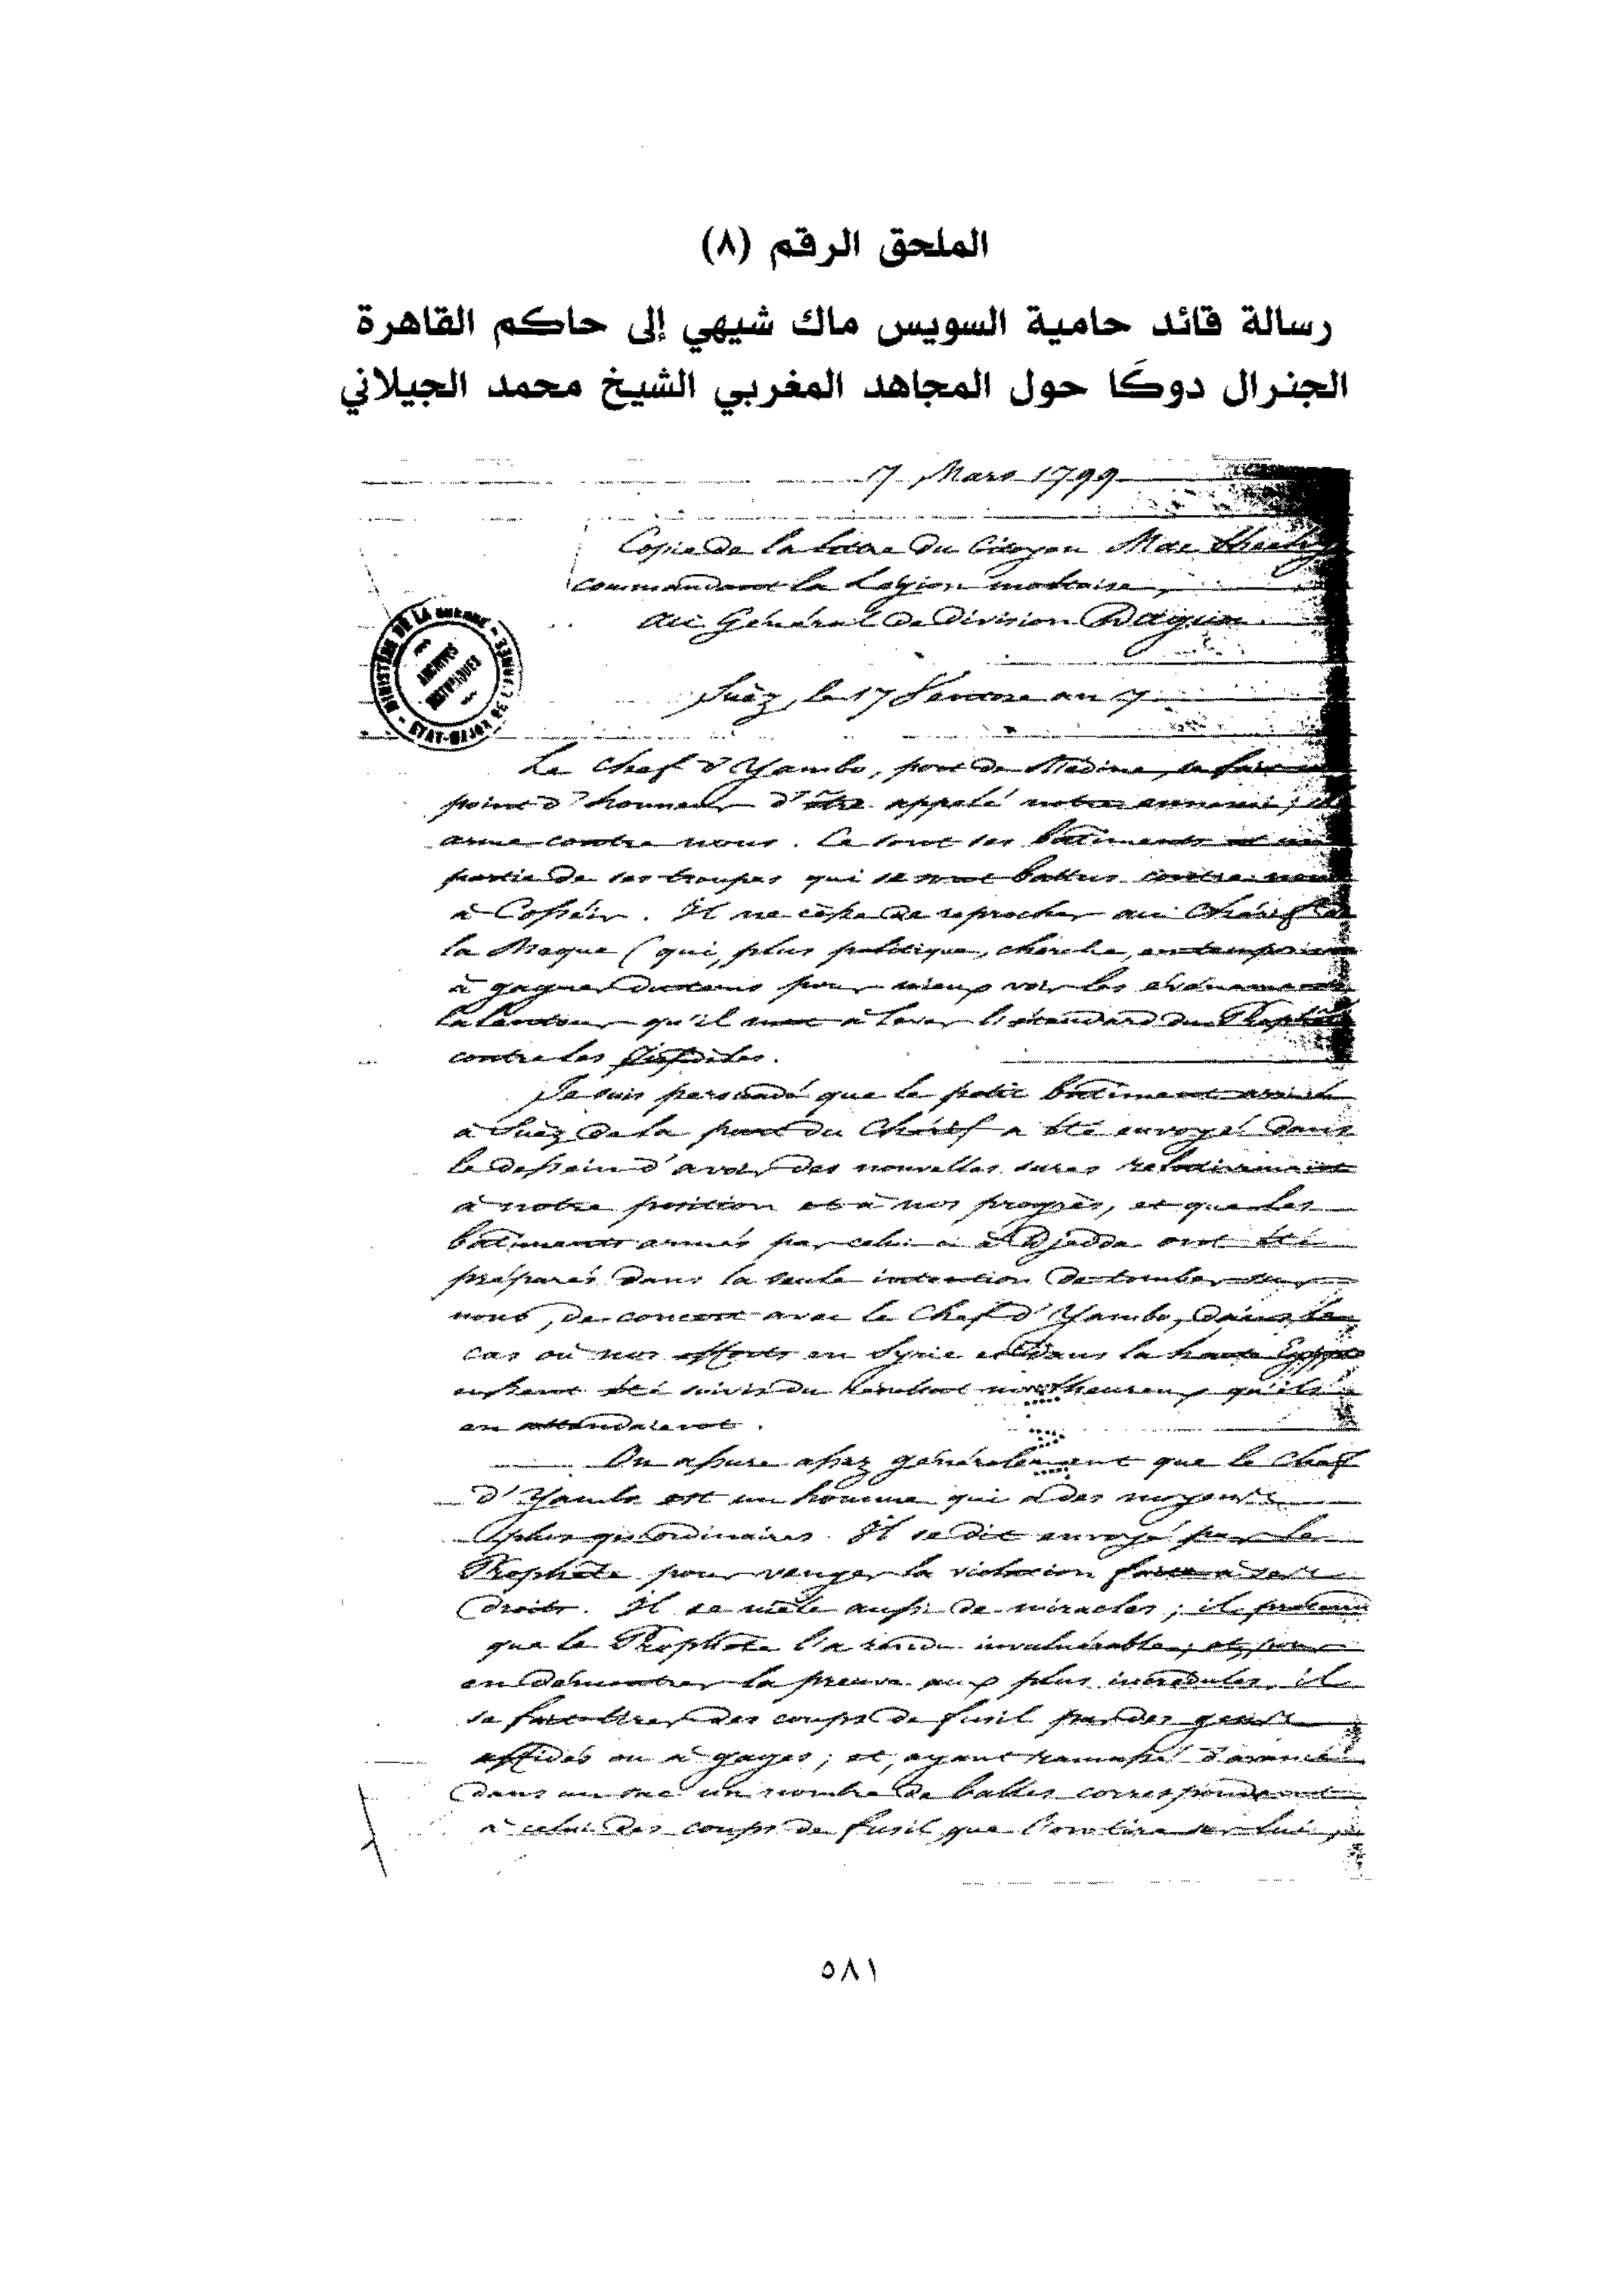 الملحق الرقم (٨)
رسالة قائد حامية السويس ماك شيهي إلى حاكم القاهرة
الجنرال دوكَا حول المجاهد المغربي الشيخ محمد الجيلاني
17 Mars 1799
Copie de la lettre du Citoyen Mac Sheehy
commandant la Légion maltaise,
au Général de Division Dugua.
MINISTÈRE DE LA GUERRE - ETAT-MAJOR DE L'ARMÉE -
ARCHIVES
HISTORIQUES
Suèz, le 17 Ventose an 7
Le Chef d'Yambo, port de Médine, se fait un
point d'honneur d'être appelé notre ennemi; il
arme contre nous. Ce sont ses bâtiments et une
partie de ses troupes qui se sont battus contre nous
à Cosséir. Il ne cesse de reprocher au Chérif de
la Meque (qui, plus politique, cherche, en temporisant
à gagner du tems pour mieux voir les évènements
la lenteur qu'il met à lever l'étendard du Prophète
contre les Infidèles.
Je suis persuadé que le petit bâtiment arrivé
à Suèz de la part du Chérif a été envoyé dans
le dessein d'avoir des nouvelles sures relativement
à notre position et à nos progrès, et que les
bâtiments armés par celui ci à Djedda ont été
préparés dans la seule intention de tomber sur
nous, de concert avec le Chef d'Yambo, dans le
cas où nos efforts en Syrie et dans la haute Egypte
eussent été suivis du résultat malheureux qu'ils
en attendaient.
On assure assez généralement que le Chef
d'Yambo est un homme qui a des moyens
plus qu'ordinaires. Il se dit envoyé par le
Prophète pour venger la violation faite à ses
droits. Il se mêle aussi de miracles; il prétend
que le Prophète l'a rendu invulnérable, et pour
en démontrer la preuve aux plus incrédules, il
se fait tirer des coups de fusil par des gens
affidés ou à gages; et, ayant ramassé d'avance
dans un sac un nombre de balles correspondant
à celui des coups de fusil que l'on tire sur lui,
٥٨١